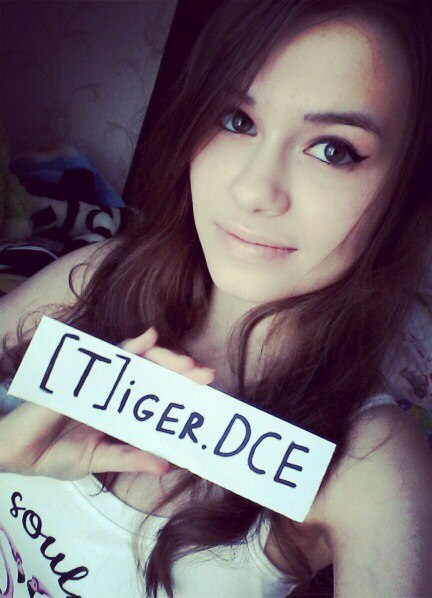 [T]iGER.DCE
soul